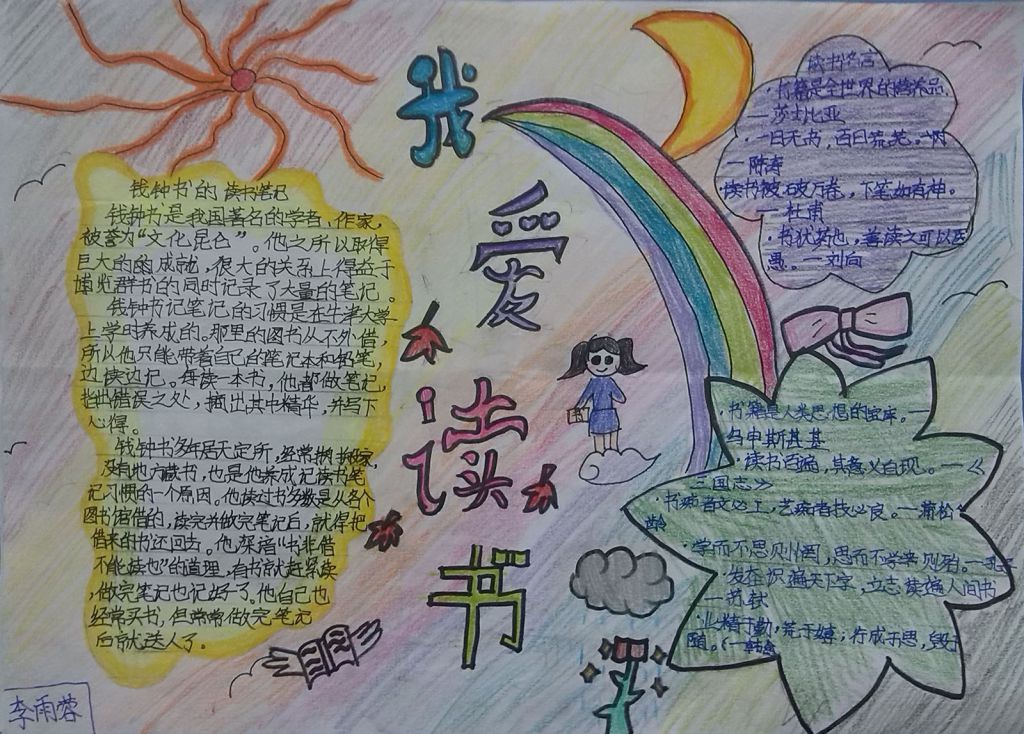 我爱读书
钱钟书的读书笔记
钱钟书是我国著名的学者、作家,
被誉为“文化昆仑”。他之所以取得
巨大的成就,很大的关系上得益于
博览群书的同时记录了大量的笔记。
钱钟书记笔记的习惯是在牛津大学
上学时养成的。那里的图书从不外借,
所以他只能带着自己的笔记本和铅笔,
边读边记。每读一本书,他都做笔记,
指出错误之处,摘出其中精华,并写下
心得。
钱钟书多年居无定所,经常搬家,
没有地方藏书,也是他养成记读书笔
记习惯的一个原因。他读过书多数是从各个
图书馆借的,读完并做完笔记后,就得把
借来的书还回去。他深谙“书非借
不能读也”的道理,有书就赶紧读
,做完笔记也记好了。他自己也
经常买书,但常常做完笔记
后就送人了。
李雨蓉
读书名言
·书籍是全世界的营养品,
—莎士比亚
·一日无书,百日荒芜。
—陈寿
读书被破万卷,下笔如有神。
—杜甫
·书犹药也,善读之可以医
愚。—刘向
·书籍是人类思想的宝库。—
乌申斯基
·读书百遍,其意义自现。—《
三国志》
·书痴者文必工,艺痴者技必良。—蒲松
龄
·学而不思则罔,思而不学则殆。—孔子
·发奋识遍天下字,立志读遍人间书
—苏轼
·业精于勤,荒于嬉;行成于思,毁于
随。—韩愈